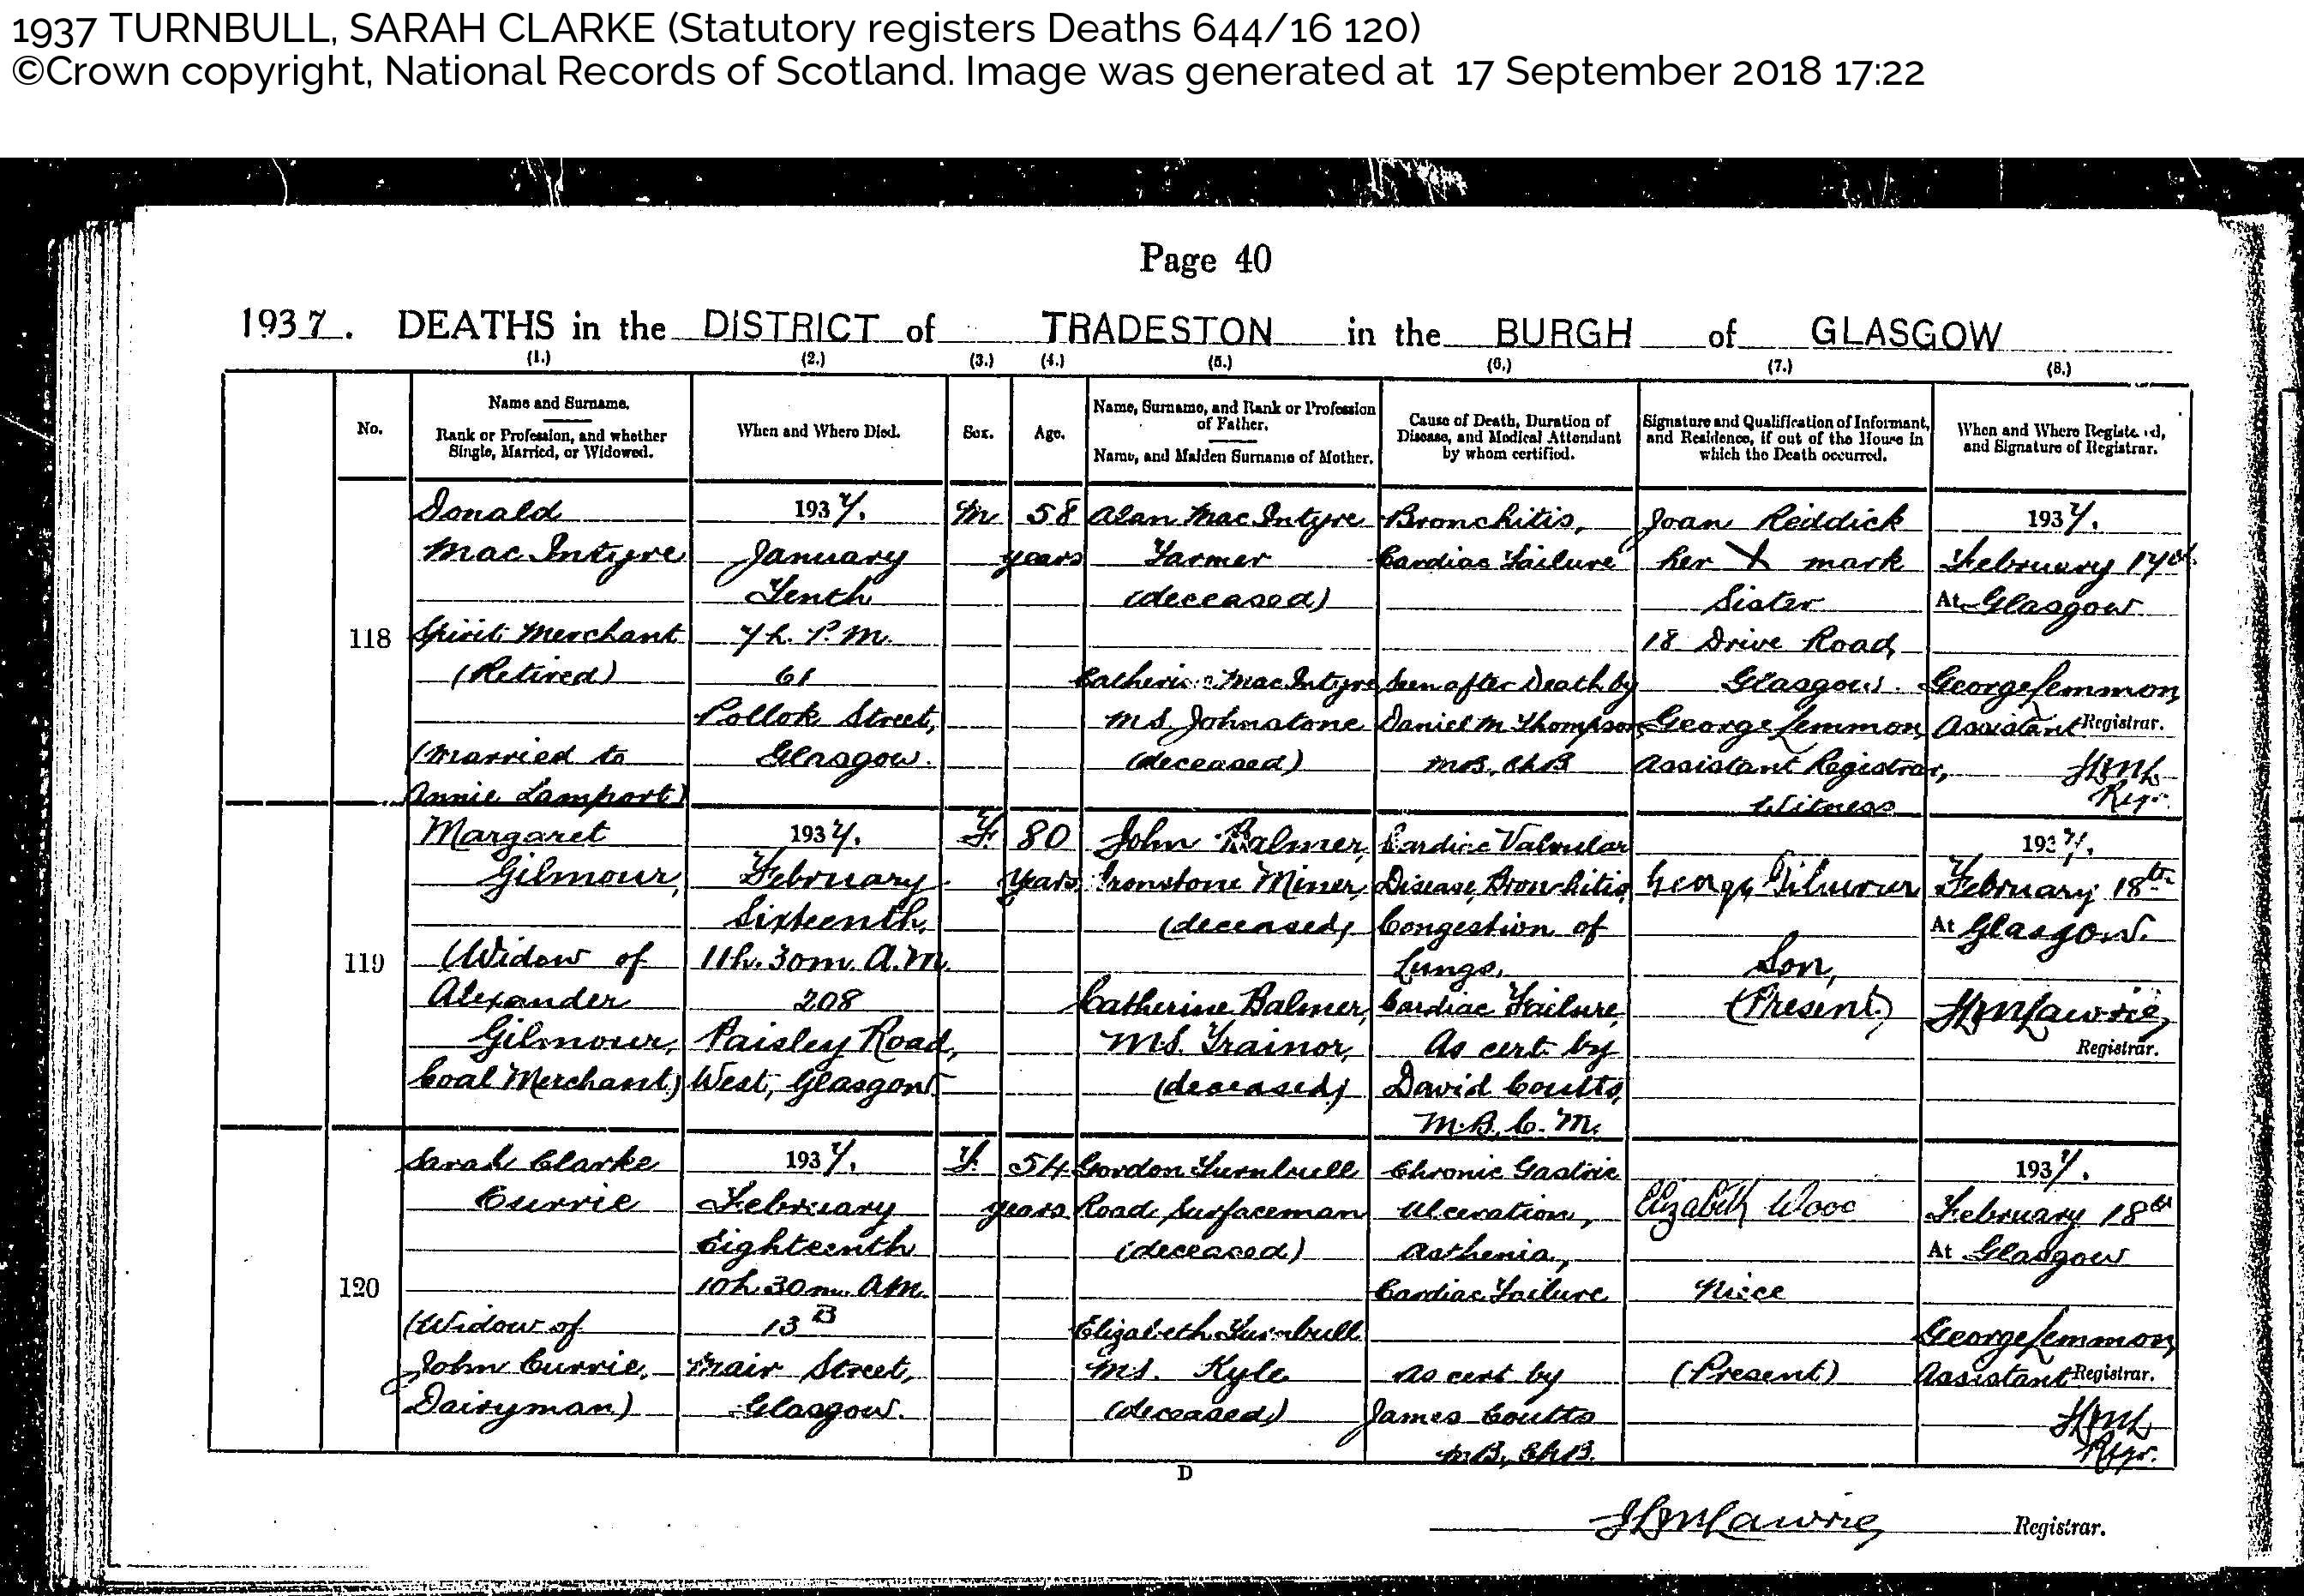 1937 TURNBULL, SARAH CLARKE (Statutory registers Deaths 644/16 120)
©Crown copyright, National Records of Scotland. Image was generated at 17 September 2018 17:22
Page 40
1937. DEATHS in the DISTRICT of TRADESTON in the BURGH of GLASGOW
(1.) (2.) (3.) (4.) (5.) (6.) (7.) (8.)
No.
Name and Surname.
Rank or Profession, and whether
Single, Married, or Widowed.
When and Where Died.
Sex.
Age.
Name, Surname, and Rank or Profession
of Father.
Name, and Maiden Surname of Mother.
Cause of Death, Duration of
Disease, and Medical Attendant
by whom certified.
Signature and Qualification of Informant,
and Residence, if out of the House in
which the Death occurred.
When and Where Registered,
and Signature of Registrar.
118
Donald
MacIntyre
Spirit Merchant
(Retired)
(Married to
Annie Lamport)
1937.
January
Tenth
7h. P.M.
61
Pollok Street,
Glasgow.
M
58
years
Alan MacIntyre
Farmer
(deceased)
Catherine MacIntyre
M.S. Johnstone
(deceased)
Bronchitis,
Cardiac Failure
Seen after Death by
Daniel M. Thompson
M.B., Ch.B
Joan Reddick
her X mark
Sister
18 Drive Road,
Glasgow.
George Lemmon,
Assistant Registrar,
Witness
1937.
February 17th
At Glasgow
George Lemmon,
Assistant Registrar.
Regr.
119
Margaret
Gilmour,
(Widow of
Alexander
Gilmour,
Coal Merchant)
1937.
February
Sixteenth,
11h. 30m. A.M.
208
Paisley Road,
West, Glasgow.
F.
80
years
John Balmer,
Ironstone Miner,
(deceased)
Catherine Balmer,
M.S. Trainor,
(deceased)
Cardiac Valvular
Disease, Bronchitis,
Congestion of
Lungs,
Cardiac Failure,
As cert. by
David Coutts,
M.B., C.M.
George Gilmour
Son,
(Present)
1937.
February 18th
At Glasgow.
Lawrie,
Registrar.
120
Sarah Clarke
Currie
(Widow of
John Currie,
Dairyman)
1937.
February
Eighteenth
10h. 30m. A.M.
13B
Mair Street,
Glasgow.
F.
54
years
Gordon Turnbull
Road Surfaceman
(deceased)
Elizabeth Turnbull
M.S. Kyle
(deceased)
Chronic Gastric
Ulceration,
Asthenia,
Cardiac Failure
As cert by
James Coutts
M.B., Ch.B.
Elizabeth Wood
Niece
(Present)
1937.
February 18th
At Glasgow
George Lemmon,
Assistant Registrar.
Regr.
D
Lawrie Registrar.